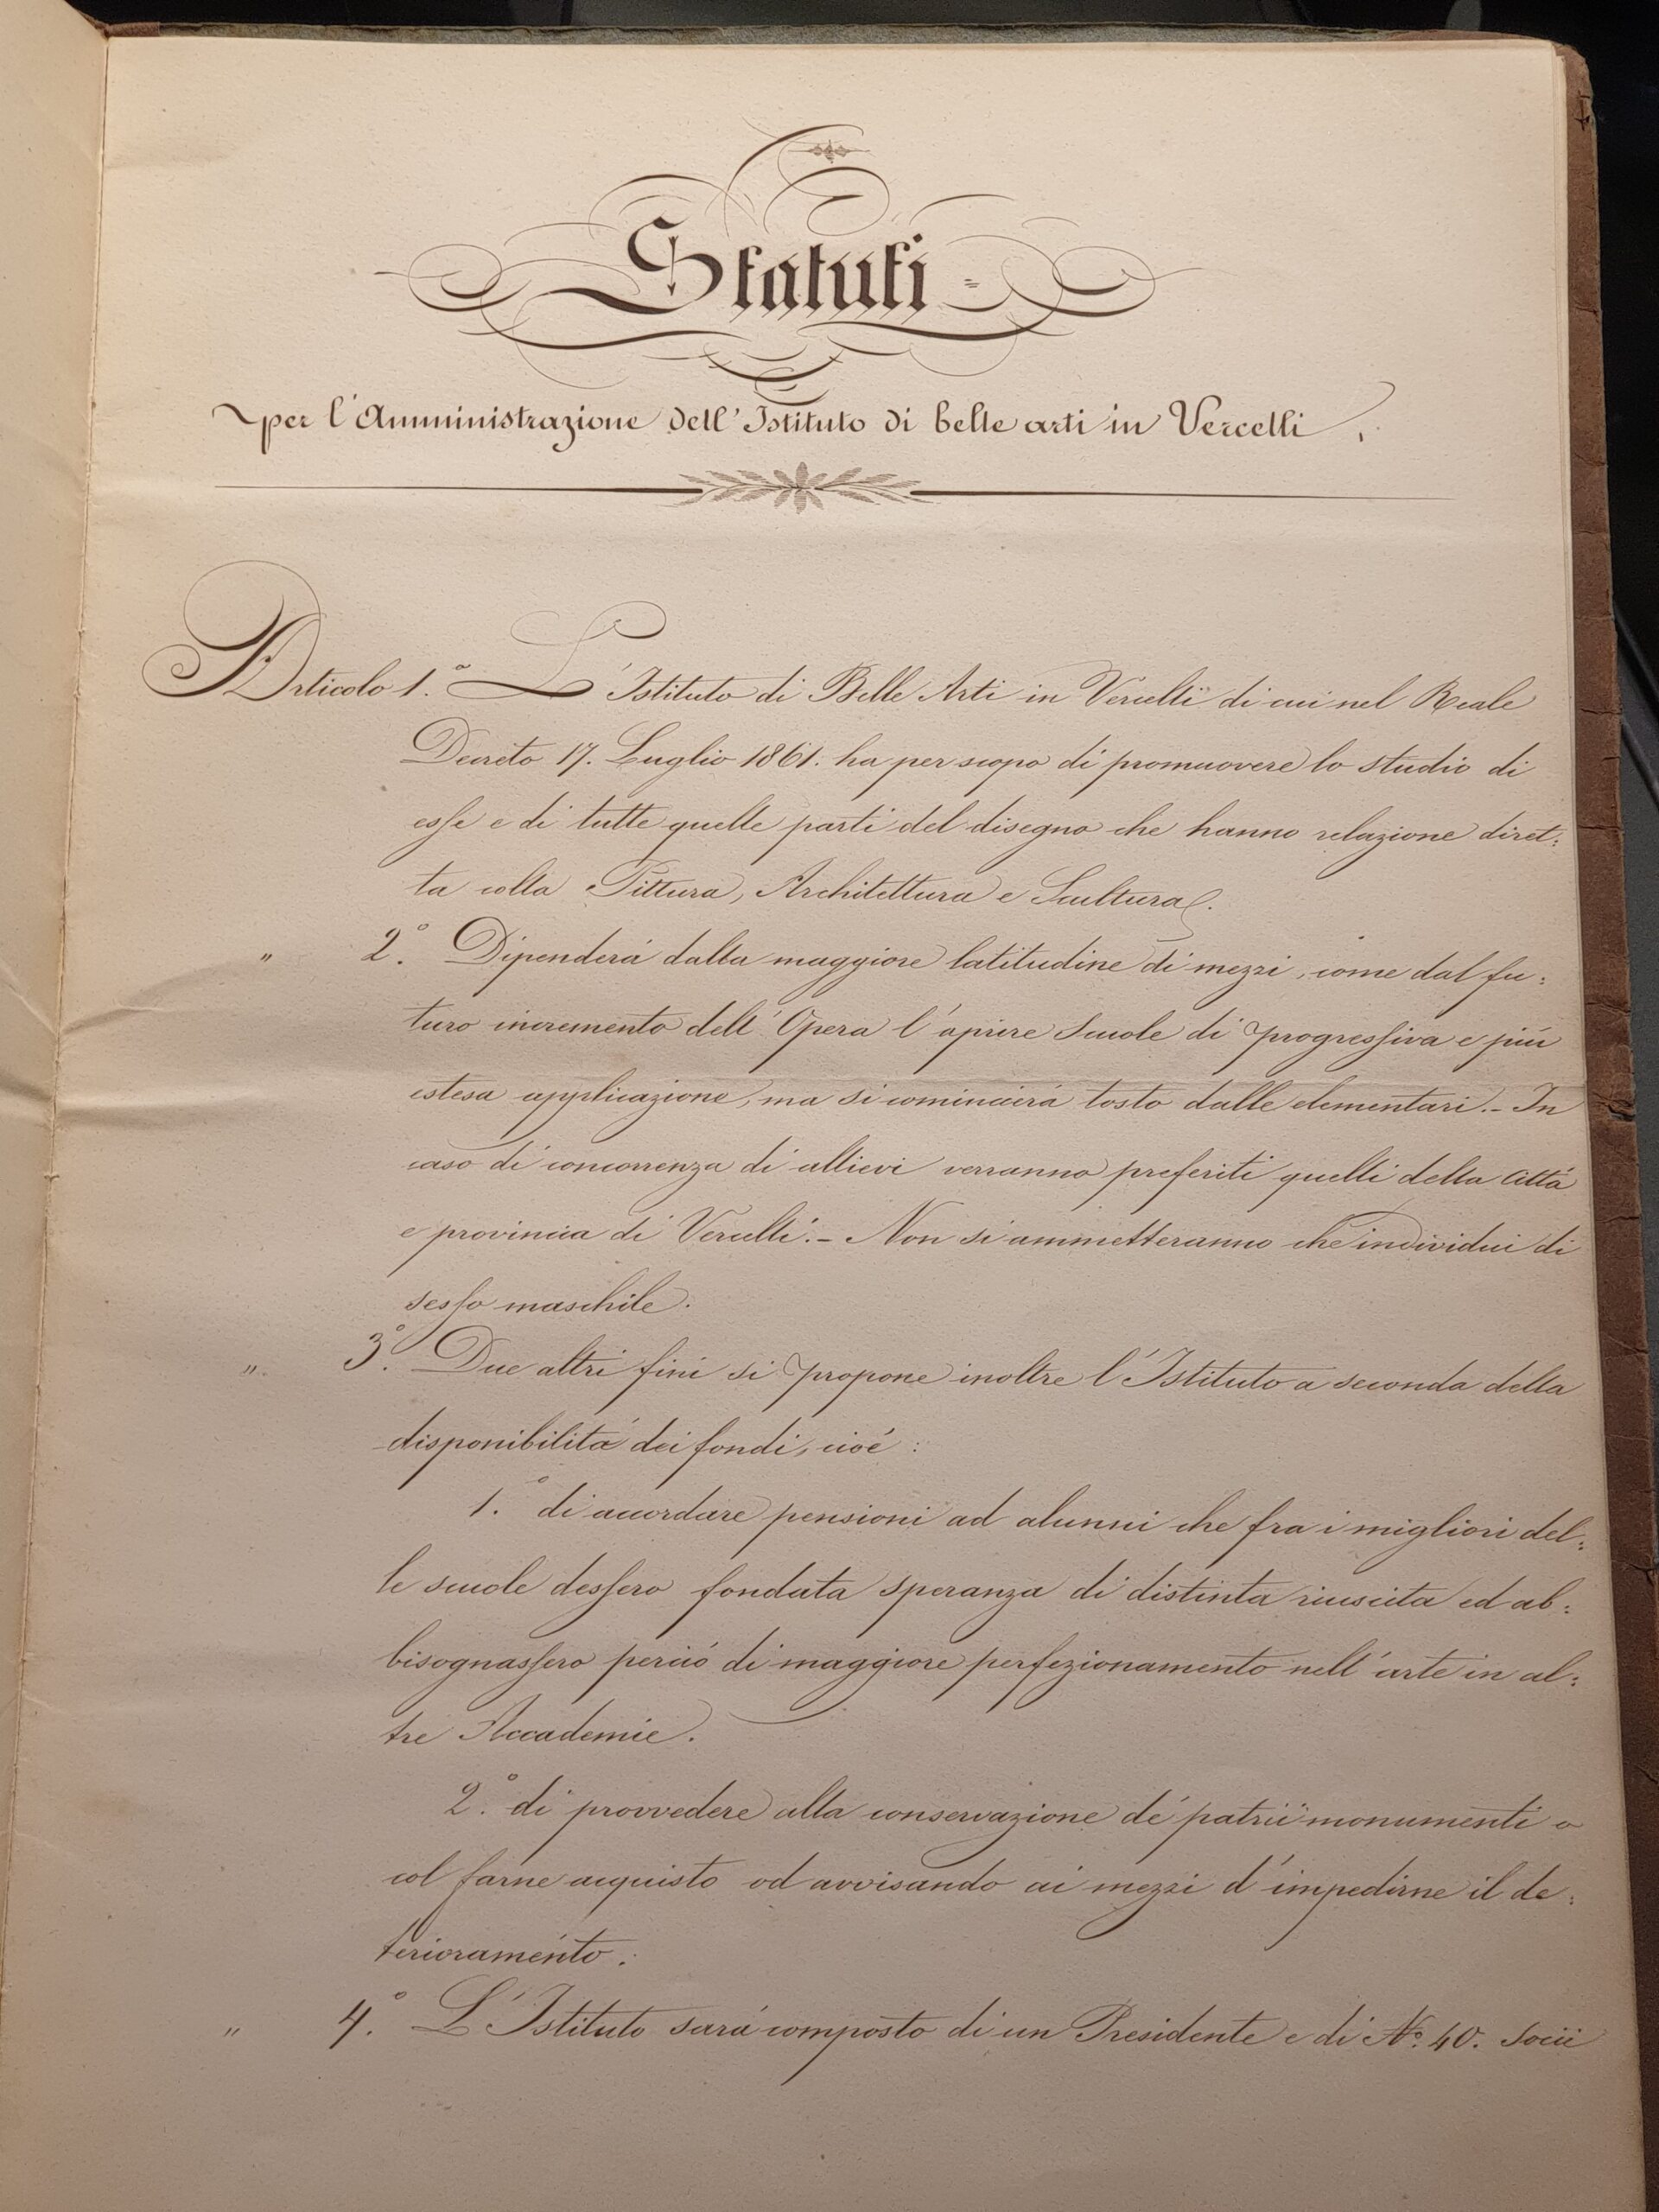 Statuti =
per l'Amministrazione dell'Istituto di belle arti in Vercelli.
Articolo 1.° L'Istituto di Belle Arti in Vercelli di cui nel Reale
Decreto 17. Luglio 1861. ha per scopo di promuovere lo studio di
esse e di tutte quelle parti del disegno che hanno relazione diret:
ta colla Pittura, Architettura e Scultura.
" 2.° Dipenderá dalla maggiore latitudine di mezzi, come dal fu:
turo incremento dell'Opera l'aprire Scuole di progressiva e piú
estesa applicazione, ma si comincierá tosto dalle elementari. - In
caso di concorrenza di allievi verranno preferiti quelli della Cittá
e provincia di Vercelli. - Non si ammetteranno che individui di
sesso maschile.
" 3.° Due altri fini si propone inoltre l'Istituto a seconda della
disponibilitá dei fondi, cioé :
1.° di accordare pensioni ad alunni che fra i migliori del:
le scuole dessero fondata speranza di distinta riuscita ed ab:
bisognassero perció di maggiore perfezionamento nell'arte in al:
tre Accademie.
2.° di provvedere alla conservazione de' patrii monumenti o
col farne acquisto od avvisando ai mezzi d'impedirne il de:
terioramento.
" 4.° L'Istituto sará composto di un Presidente e di N.° 40. Socii